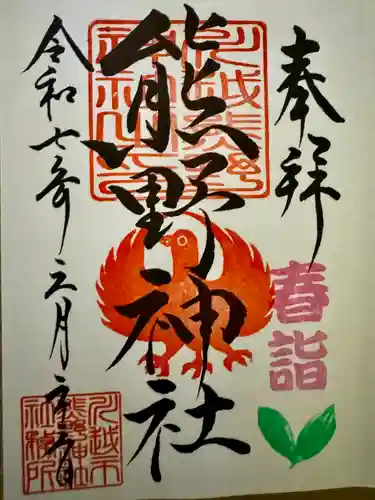 奉拝
春詣
川越熊野
神社之
熊野神社
令和七年三月
川越市
熊野神社
社務所